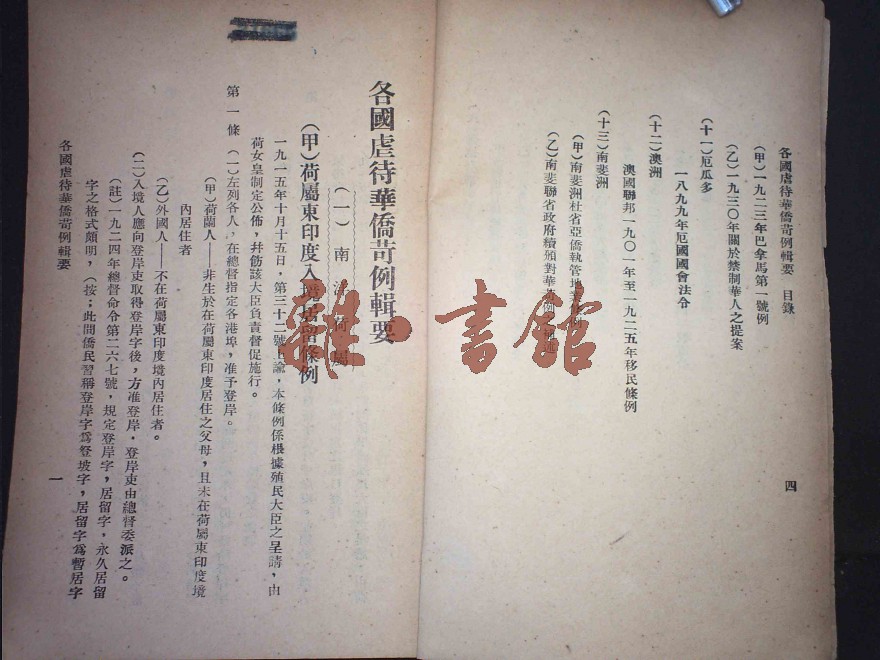 各國虐待華僑苛例輯要　目錄
(甲)一九二三年巴拿馬第一號例
(乙)一九三〇年關於禁制華人之提案
(十一)厄瓜多
一八九九年厄國國會法令
(十二)澳洲
澳國聯邦一九〇一年至一九二五年移民條例
(十三)南斐洲
(甲)南斐洲杜省亞僑執管地
(乙)南斐聯省政府續頒對華
四
各國虐待華僑苛例輯要
(一)南
(甲)荷屬東印度入境居留條例
一九一五年十月十五日，第三十二號上諭，本條例係根據殖民大臣之呈請，由
荷女皇制定公佈，幷飭該大臣負責督促施行。
第一條　(一)左列各人，在總督指定各港埠，准予登岸。
(甲)荷蘭人——非生於在荷屬東印度居住之父母，且未在荷屬東印度境
內居住者
(乙)外國人——不在荷屬東印度境內居住者。
(二)入境人應向登岸吏取得登岸字後，方准登岸，登岸吏由總督委派之。
(註)一九二四年總督命令第二六七號，規定登岸字，居留字，永久居留
字之格式頗明，(按；此間僑民習稱登岸字爲登坡字，居留字爲暫居字
各國虐待華僑苛例輯要
一
雅
書館